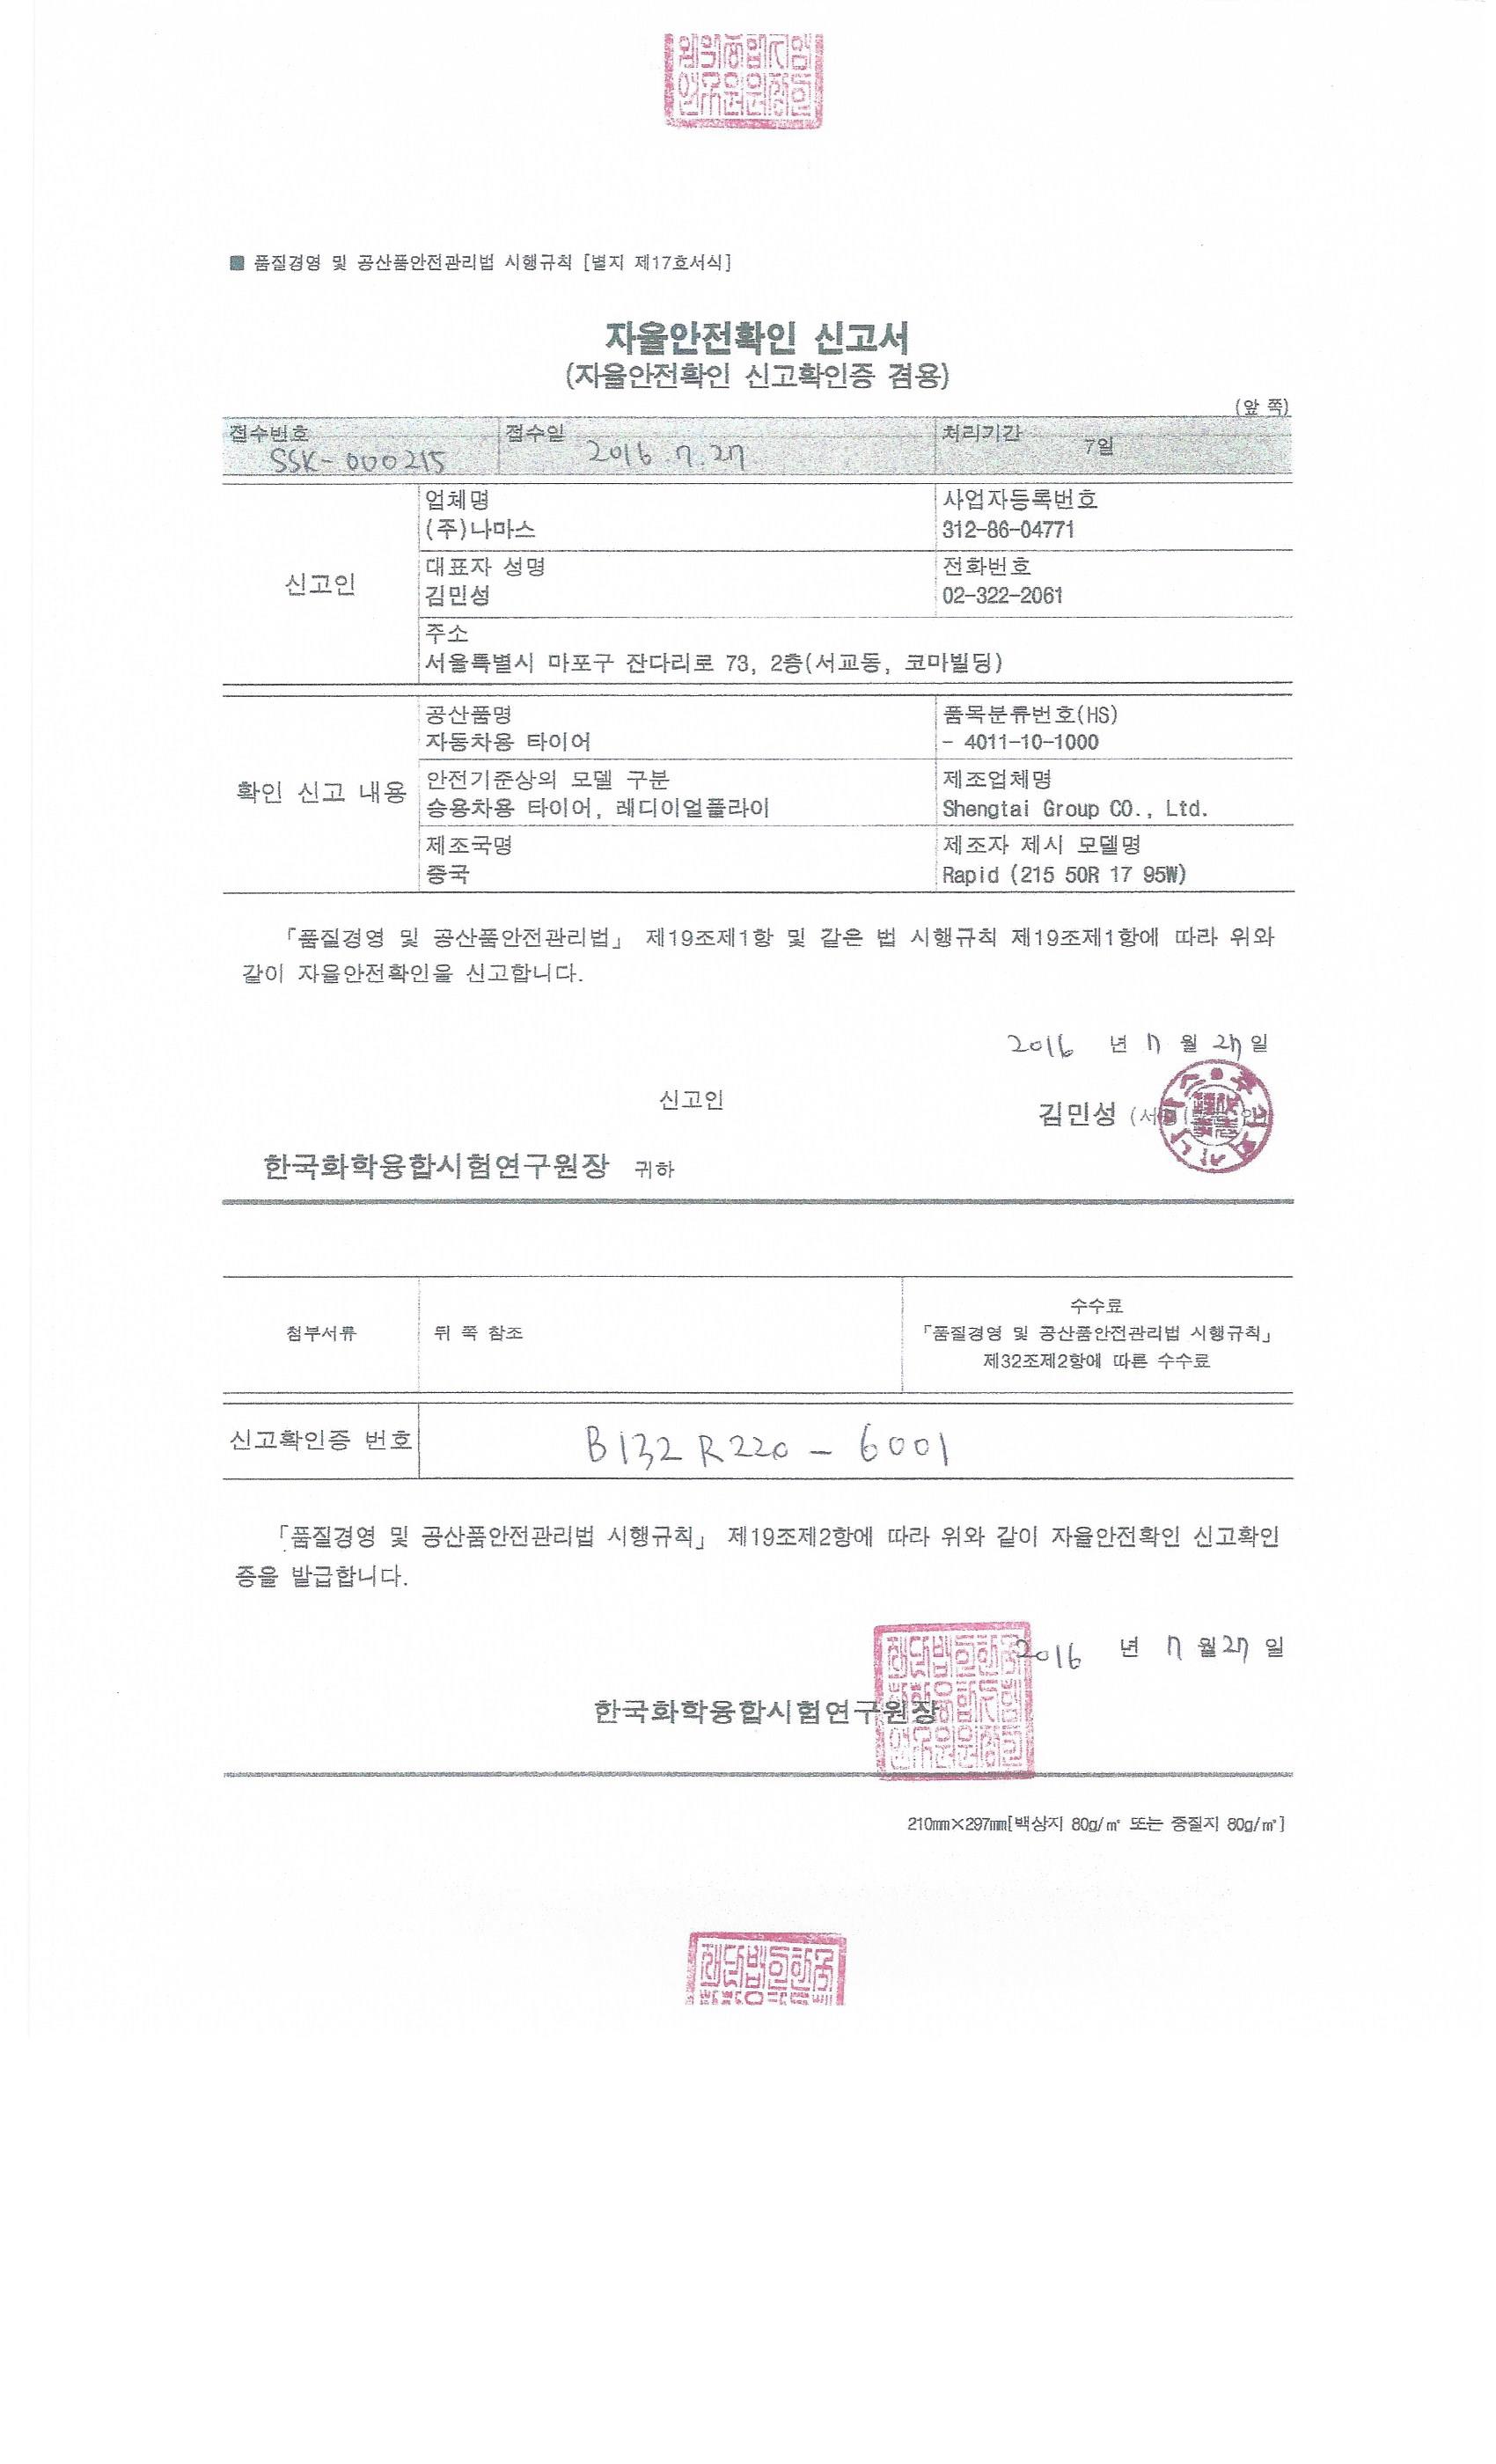 ■ 품질경영 및 공산품안전관리법 시행규칙 [별지 제17호서식]
자율안전확인 신고서
(자율안전확인 신고확인증 겸용)
(앞 쪽)
접수번호 접수일 처리기간
SSK-000215 2016.7.27 7일
업체명 사업자등록번호
(주)나마스 312-86-04771
대표자 성명 전화번호
신고인 김민성 02-322-2061
주소
서울특별시 마포구 잔다리로 73, 2층(서교동, 코마빌딩)
공산품명 품목분류번호(HS)
자동차용 타이어 - 4011-10-1000
확인 신고 내용 안전기준상의 모델 구분 제조업체명
승용차용 타이어, 레디이얼플라이 Shengtai Group CO., Ltd.
제조국명 제조자 제시 모델명
중국 Rapid (215 50R 17 95W)
「품질경영 및 공산품안전관리법」 제19조제1항 및 같은 법 시행규칙 제19조제1항에 따라 위와
같이 자율안전확인을 신고합니다.
2016 년 7 월 27 일
신고인 김민성 (서
한국화학융합시험연구원장 귀하
수수료
첨부서류 뒤 쪽 참조 「품질경영 및 공산품안전관리법 시행규칙」
제32조제2항에 따른 수수료
신고확인증 번호 B132R220-6001
「품질경영 및 공산품안전관리법 시행규칙」 제19조제2항에 따라 위와 같이 자율안전확인 신고확인
증을 발급합니다.
2016 년 7 월 27 일
한국화학융합시험연구원장
210mm×297mm[백상지 80g/㎡ 또는 중질지 80g/㎡]